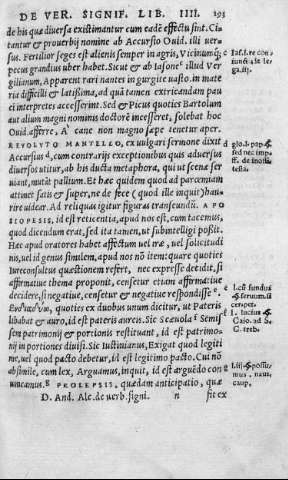 DE VER. SIGNIF. LIB. IIII. 193
de his qua diversa existimantur cum eadē effectu sint. Ci-
tantur & prouerbij nomine ab Accursio Ouid. illi uer-
sus. Fertilior seges est alienis semper in agris, Vicinumq;
pecus grandius uber habet. Sicut & ab Iasone illud Ver
gilianum, Apparent rari nantes in gurgite uasto. in mate
ria difficili & latissima, ad quā tamen extricandam pau
ci interpretes accesserint. Sed & Picus quoties Bartolum
aut alium magni nominis doctorē incesseret, solebat hoc
Ouid. afferre, A' cane non magno sæpe tenetur aper.
REVOLVTO MANTELLO, ex uulgari sermone dixit
Accursius, cum contrarijs exceptionibus quis aduersus
diuersos utitur, ab his ducta metaphora, qui ut scenæ ser
uiant, mutāt pallium. Et hæc quidem quod ad parœmiam
attinet satis & super, ne de fece (quod ille inquit) hau-
rire uidear. Ad reliquas igitur figuras transeundū. APO
SIOPESIS, id est reticentia, apud nos est, cum tacemus,
quod dicendum erat, sed ita tamen, ut subintelligi possit.
Hæc apud oratores habet affectum uel iræ, uel solicitudi
nis, uel id genus similem, apud nos nō item: quare quoties
Iureconsultus quæstionem refert, nec expresse decidit, si
affirmatiue thema proponit, censetur etiam affirmatiue
decidere, si negatiue, censetur & negatiue respondisse.
quoties ex duobus unum dicitur, ut Pateris
libabat & auro, id est pateris aureis. Sic Scæuola Semis
sem patrimonij & portionis restituant, id est patrimo-
nij in portiones diuisi. Sic Iustinianus, Exigat quod legiti
me, uel quod pacto debetur, id est legitimo pacto. Cui nō
absimile, cum lex, Arguamus, inquit, id est arguēdo con
uincamus. PROLEPSIS, quædam anticipatio, quæ
D. And. Alc. de uerb. signi. n fit ex